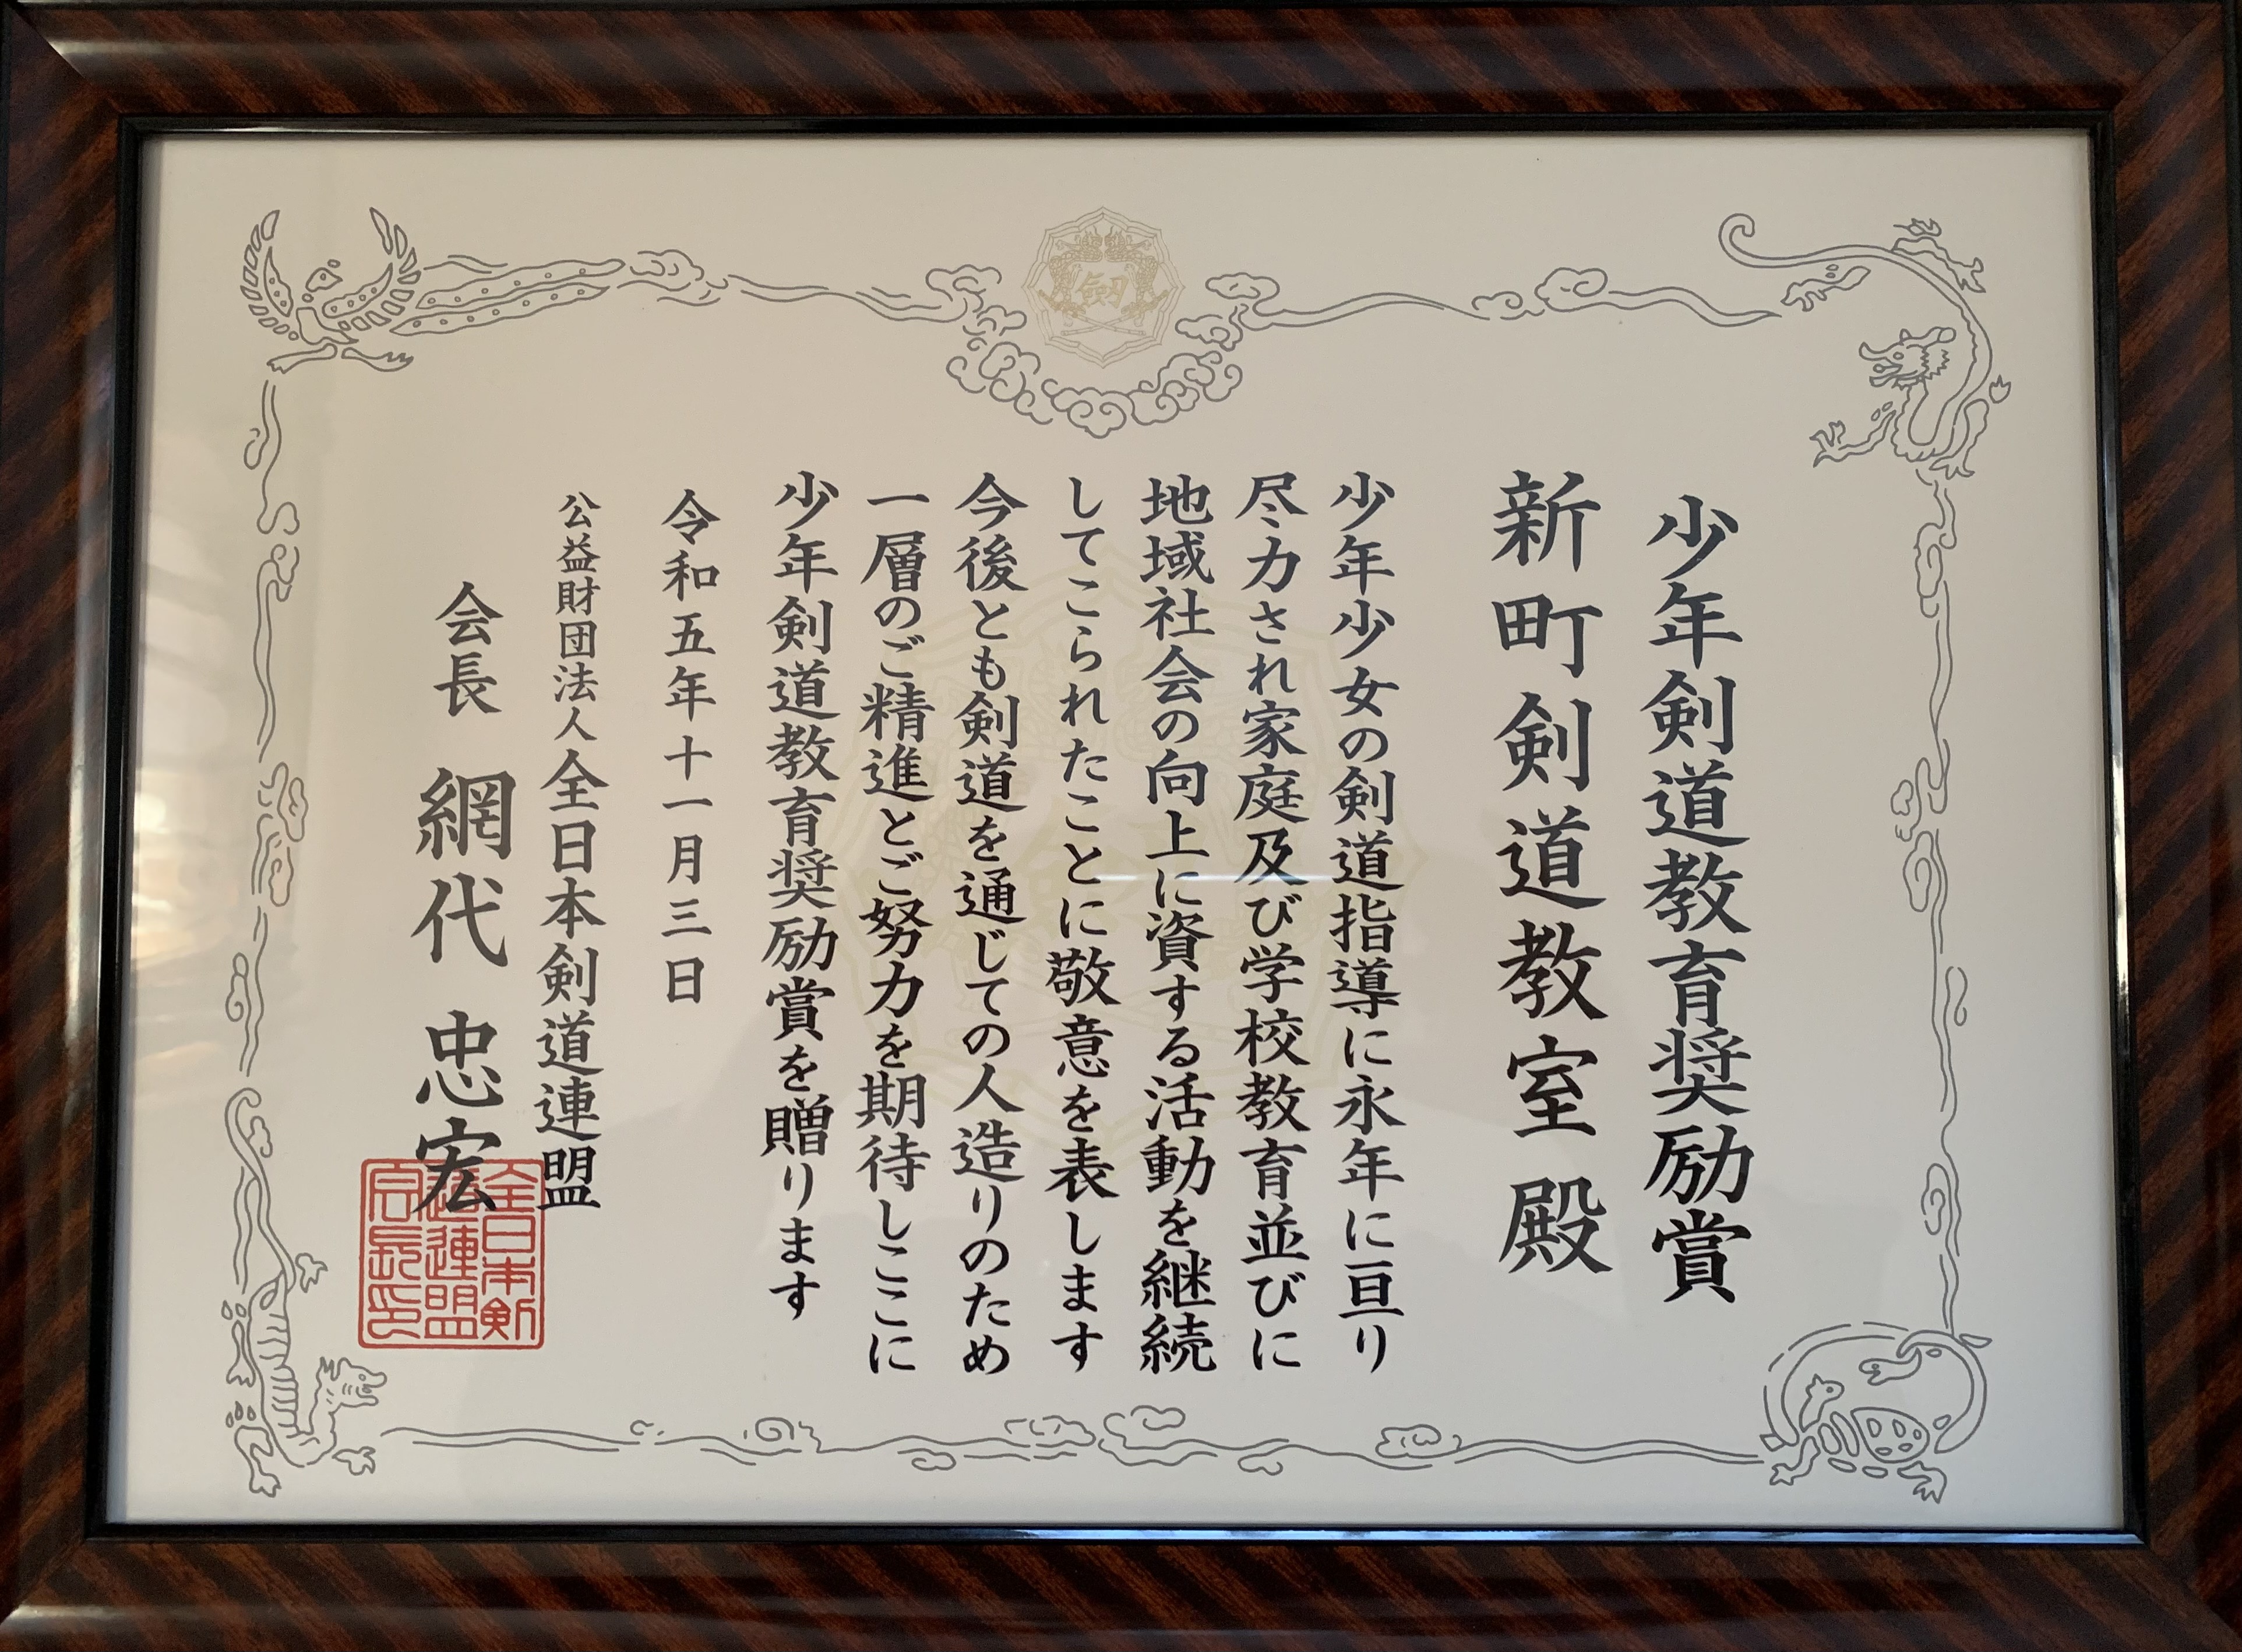 少年剣道教育奨励賞
新町剣道教室殿
少年少女の剣道指導に永年に亘り
尽力され家庭及び学校教育並びに
地域社会の向上に資する活動を継続
してこられたことに敬意を表します
今後とも剣道を通じての人造りのため
一層のご精進とご努力を期待しここに
少年剣道教育奨励賞を贈ります
令和五年十一月三日
公益財団法人全日本剣道連盟
会長 網代忠宏
全日本剣
道連盟
会長印
剱